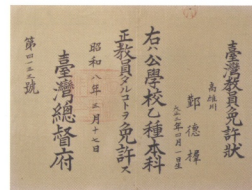 臺灣教員免許狀
高雄州
鄭德樟
大正三年四月一日生
右ハ公學校乙種本科
正教員タルコトヲ免許ス
昭和八年三月十七日
臺灣總督府
第四一三三號